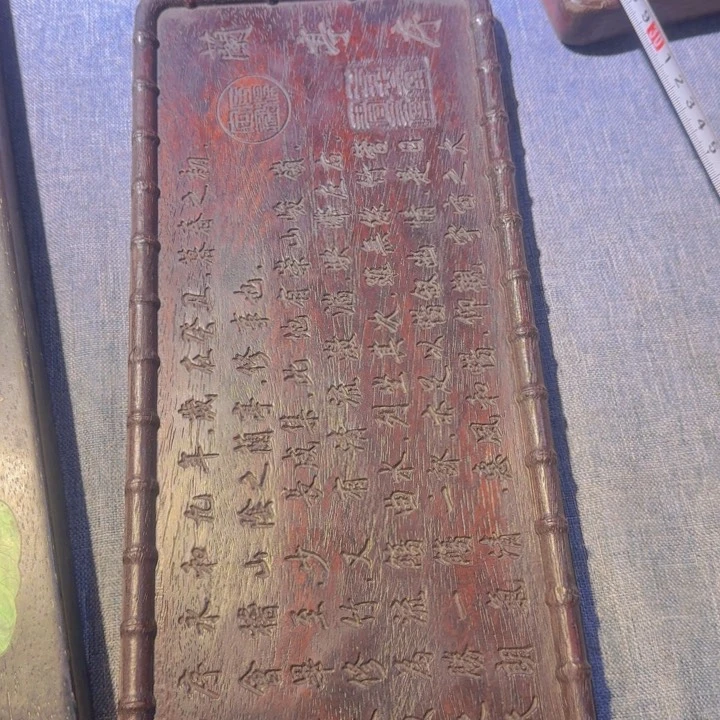 蘭亭
序永和九年歲在癸丑暮春之初
會稽山陰之蘭亭修稧事也
畢至少長咸集此地有崇山峻領
修竹又有清流激湍映帶左右
為流觴曲水列坐其次雖無絲竹管
盛一觴一詠亦足以暢敘幽情是日
朗氣清惠風和暢仰觀宇宙之大